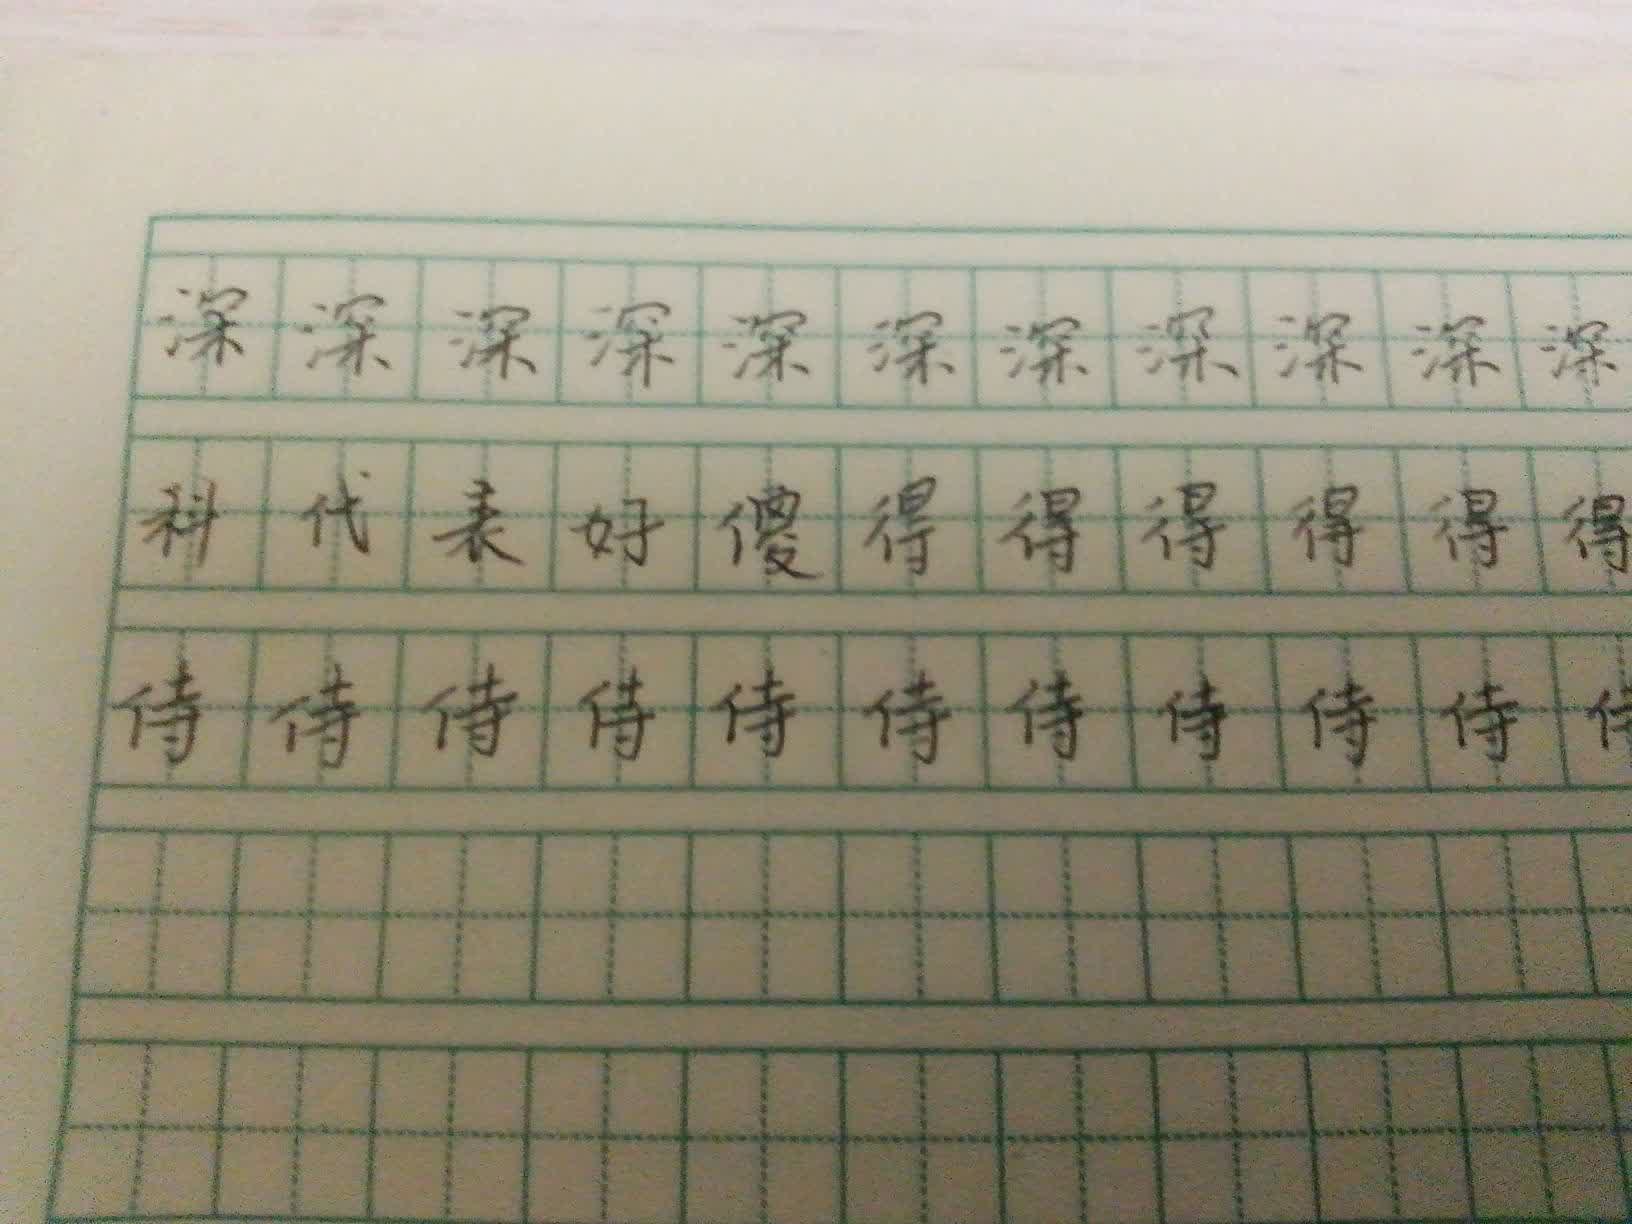 深深深深深深深深深深深
科代表好傻得得得得得得
侍侍侍侍侍侍侍侍侍侍侍